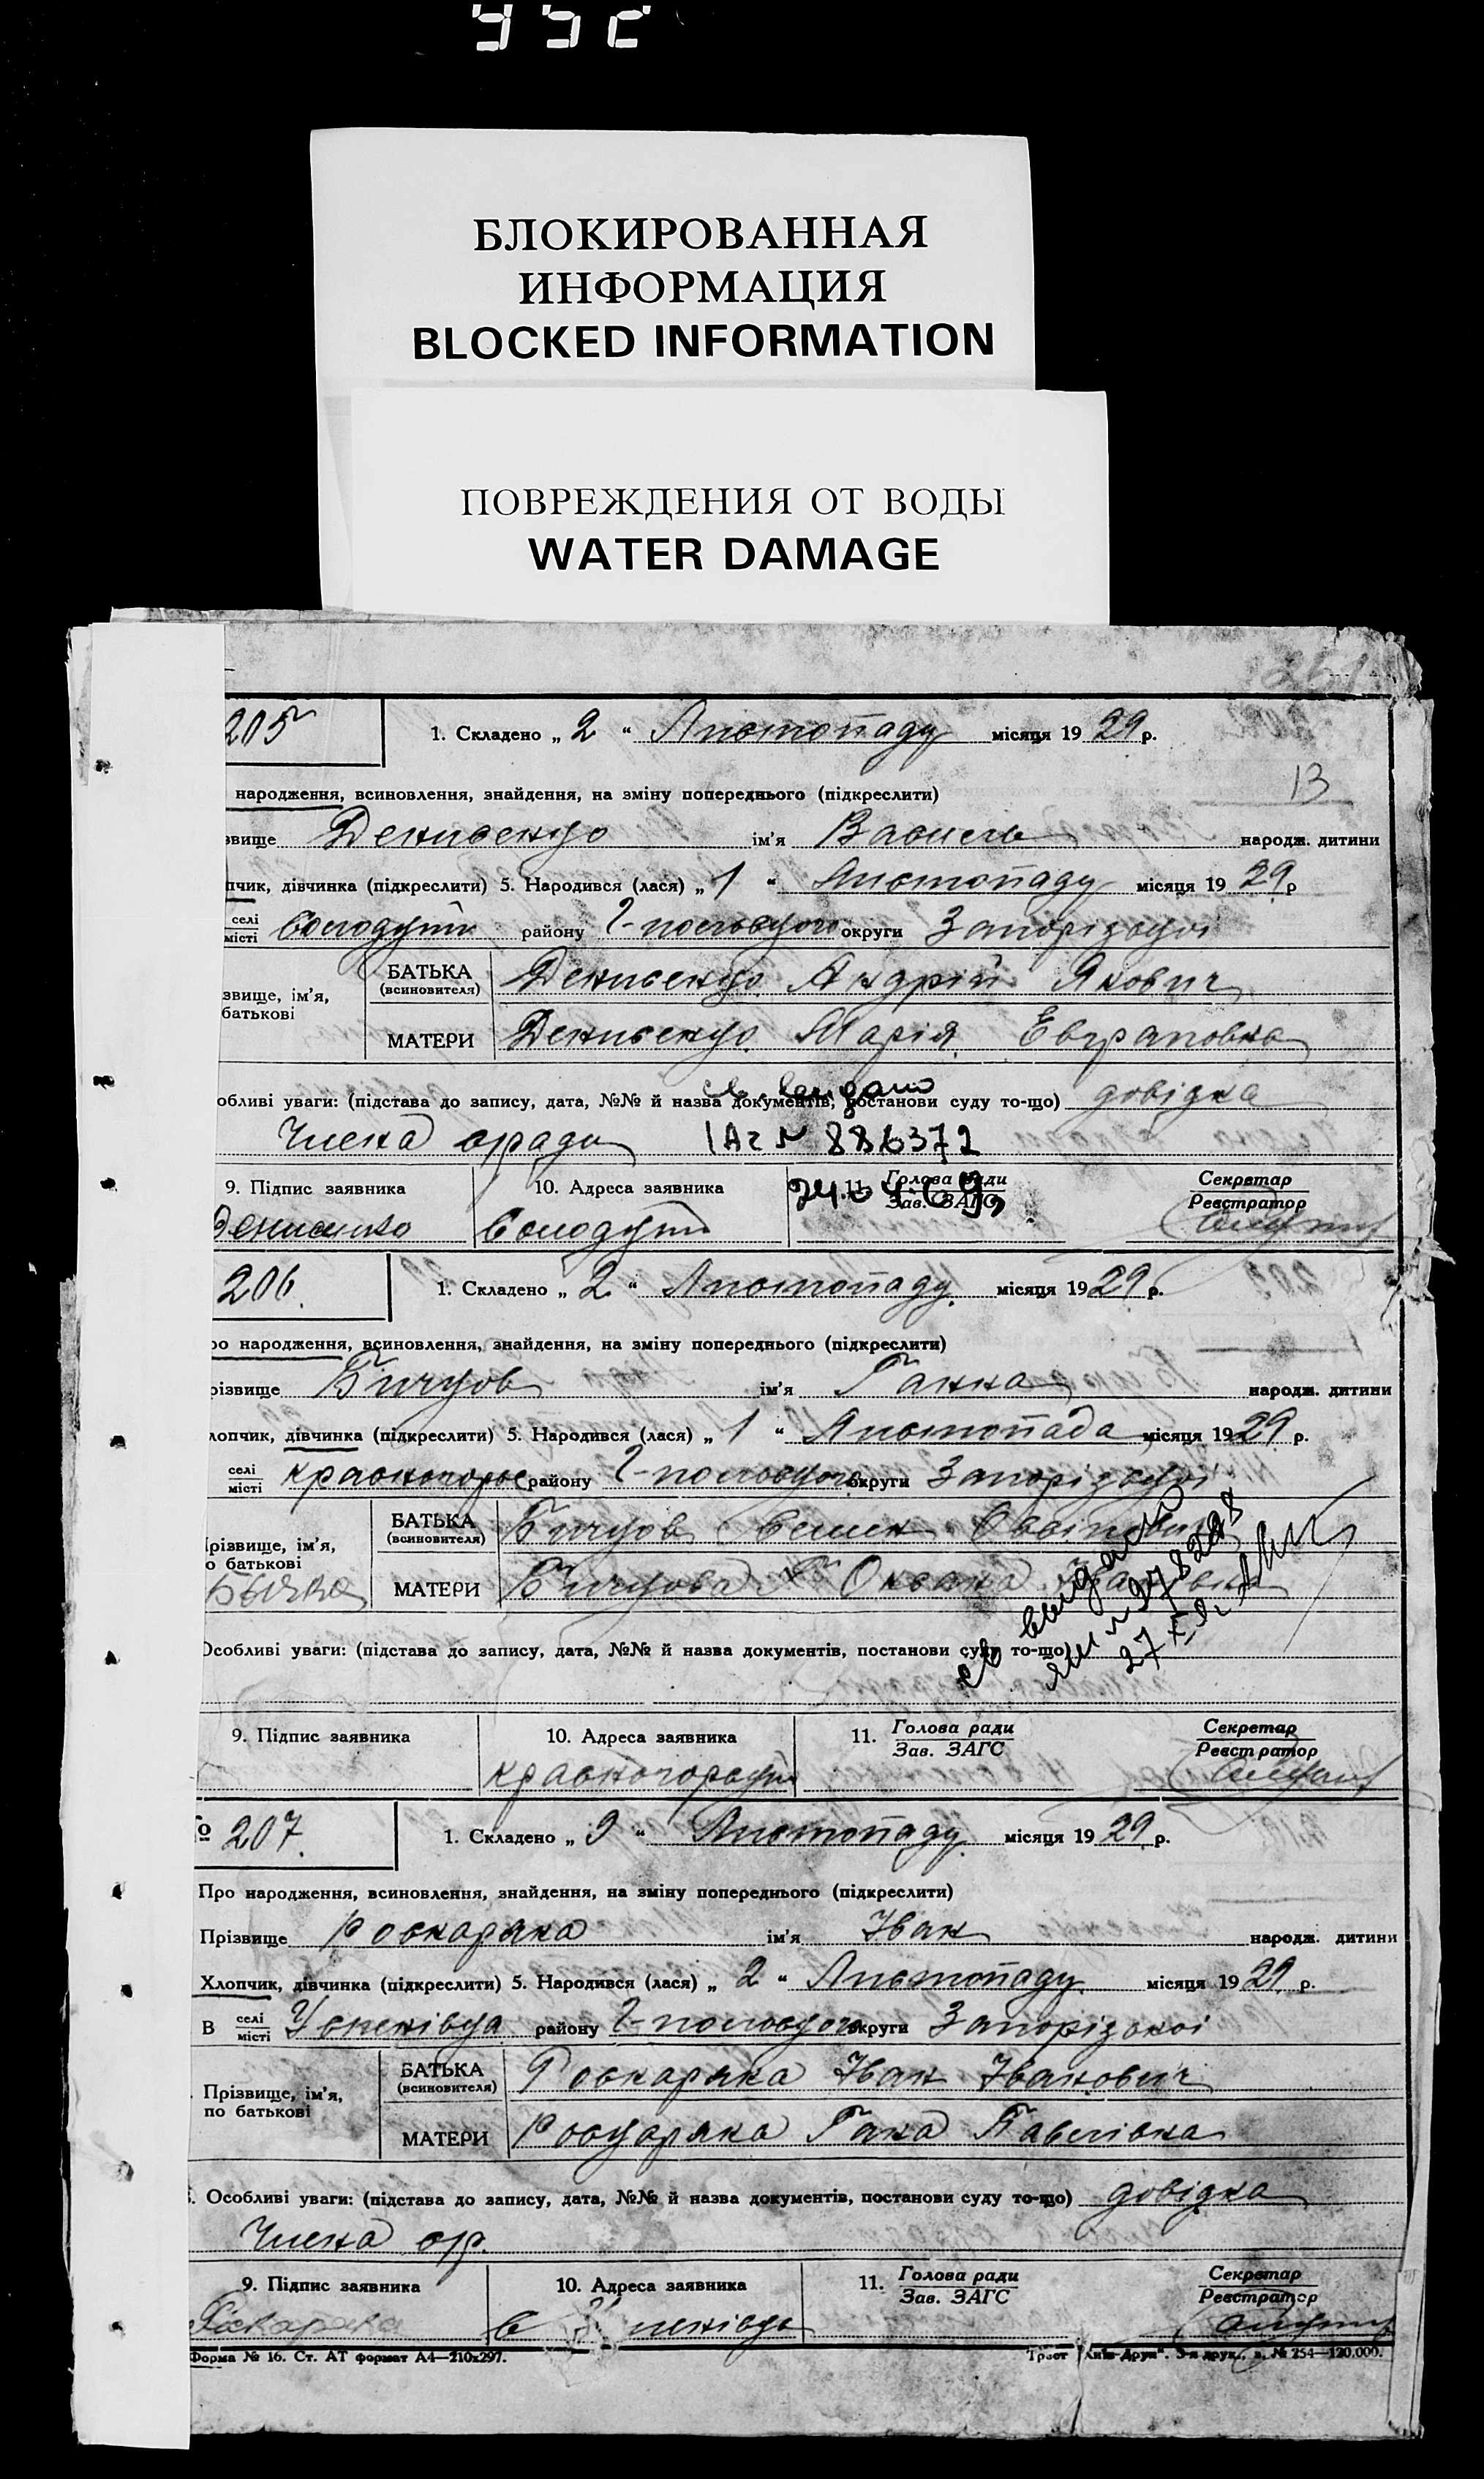 БЛОКИРОВАННАЯ
ИНФОРМАЦИЯ
BLOCKED INFORMATION
ПОВРЕЖДЕНИЯ ОТ ВОДЫ
WATER DAMAGE
205 1. Складено „ 2 “ Листопаду місяця 19 29 р.
13
народження, всиновлення, знайдення, на зміну попереднього (підкреслити)
звище Денисенко ім'я Василь народж. дитини
пчик, дівчинка (підкреслити) 5. Народився (лася) „ 1 “ Листопаду місяця 19 29 р
селі
місті району Г-польського округи Запорізької
звище, ім'я,
батькові
БАТЬКА
(всиновителя) Денисенко Андрій Якович
МАТЕРИ Денисенко Марія
обливі уваги: (підстава до запису, дата, №№ й назва документів, постанови суду то-що) довідка
Члена с/ради
св. видано
ІАг № 886372
9. Підпис заявника 10. Адреса заявника 11. Голова ради
Зав. ЗАГС
Секретар
Реєстратор
Денисенко
206. 1. Складено „ 2 “ Листопаду місяця 19 29 р.
ро народження, всиновлення, знайдення, на зміну попереднього (підкреслити)
різвище Бичков ім'я Ганна народж. дитини
лопчик, дівчинка (підкреслити) 5. Народився (лася) „ 1 “ Листопада місяця 19 29 р.
селі
місті району Г-польського округи Запорізької
різвище, ім'я,
о батькові
БАТЬКА
(всиновителя) Бичков Семен
МАТЕРИ Бичкова Оксана
св выдано
Особливі уваги: (підстава до запису, дата, №№ й назва документів, постанови суду то-що)
9. Підпис заявника 10. Адреса заявника 11. Голова ради
Зав. ЗАГС
Секретар
Реєстратор
№ 207. 1. Складено „ 9 “ Листопаду місяця 19 29 р.
Про народження, всиновлення, знайдення, на зміну попереднього (підкреслити)
Прізвище Роскаряка ім'я Іван народж. дитини
Хлопчик, дівчинка (підкреслити) 5. Народився (лася) „ 2 “ Листопаду місяця 19 29 р.
В селі
місті Успенівка району Г-польського округи Запорізької
Прізвище, ім'я,
по батькові
БАТЬКА
(всиновителя) Роскаряка Іван Іванович
МАТЕРИ Роскаряка Гана Павлівна
Особливі уваги: (підстава до запису, дата, №№ й назва документів, постанови суду то-що) довідка
Члена с/р.
9. Підпис заявника 10. Адреса заявника 11. Голова ради
Зав. ЗАГС
Секретар
Реєстратор
Форма № 16. Ст. АТ формат А4—210х297. Трест „Київ-Друк“. 3-я друк., з. № 254—120.000.